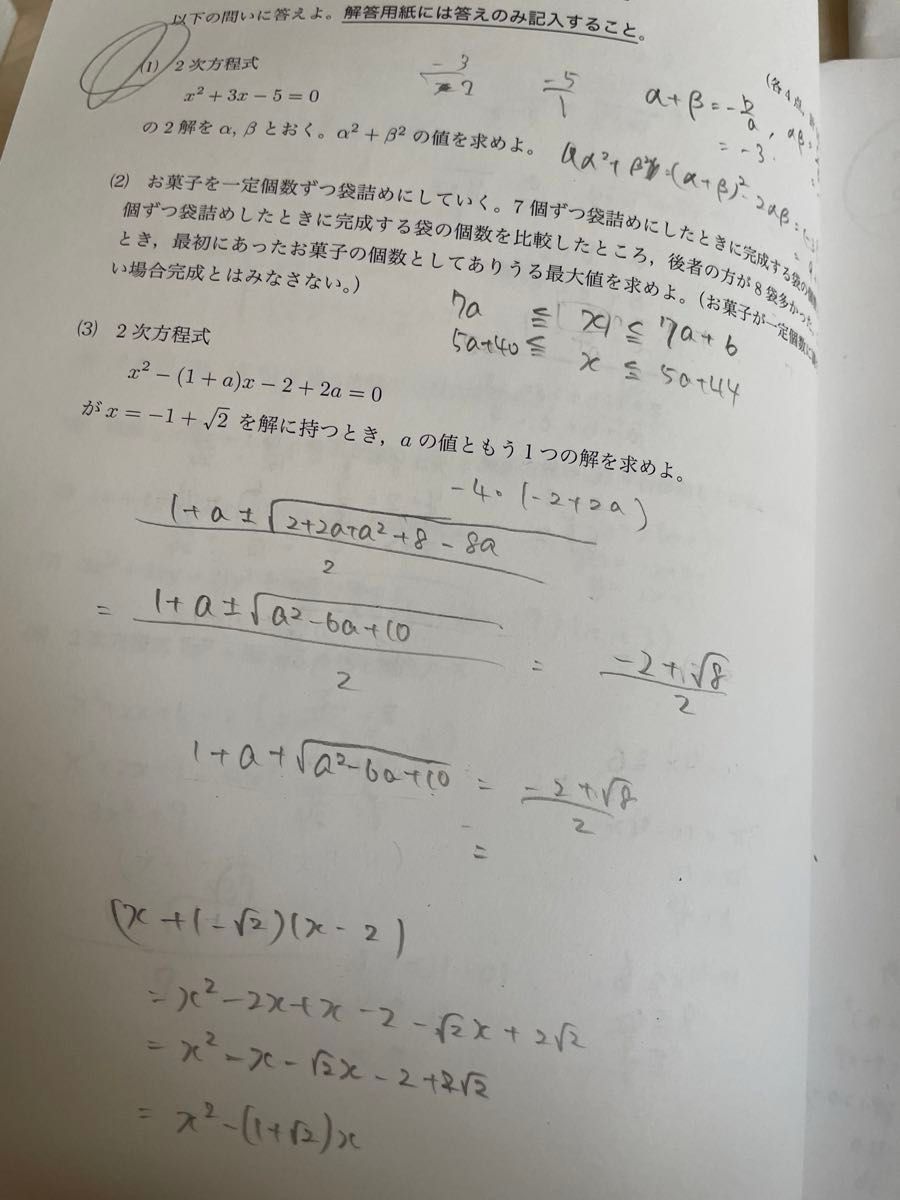 以下の問いに答えよ。解答用紙には答えのみ記入すること。
(各4点,
(1) 2次方程式
x² + 3x − 5 = 0
の2解を α, β とおく。α² + β² の値を求めよ。
−3
−5/1
α+β = −b/a, αβ =
= −3.
α²+β² = (α+β)² − 2αβ =
(2) お菓子を一定個数ずつ袋詰めにしていく。7個ずつ袋詰めにしたときに完成する袋の
個ずつ袋詰めしたときに完成する袋の個数を比較したところ,後者の方が8袋多かった。
とき,最初にあったお菓子の個数としてありうる最大値を求めよ。(お菓子が一定個数に
い場合完成とはみなさない。)
7a ≦ x ≦ 7a+6
5a+40 ≦ x ≦ 5a+44
(3) 2次方程式
x² − (1 + a)x − 2 + 2a = 0
が x = −1 + √2 を解に持つとき,a の値ともう1つの解を求めよ。
−4・(−2+2a)
(1+a±√(2+2a+a²+8−8a))/2
= (1+a±√(a²−6a+10))/2 = (−2+√8)/2
1+a+√(a²−6a+10) = (−2+√8)/2
=
(x+1−√2)(x−2)
= x²−2x+x−2−√2x+2√2
= x²−x−√2x−2+2√2
= x²−(1+√2)x